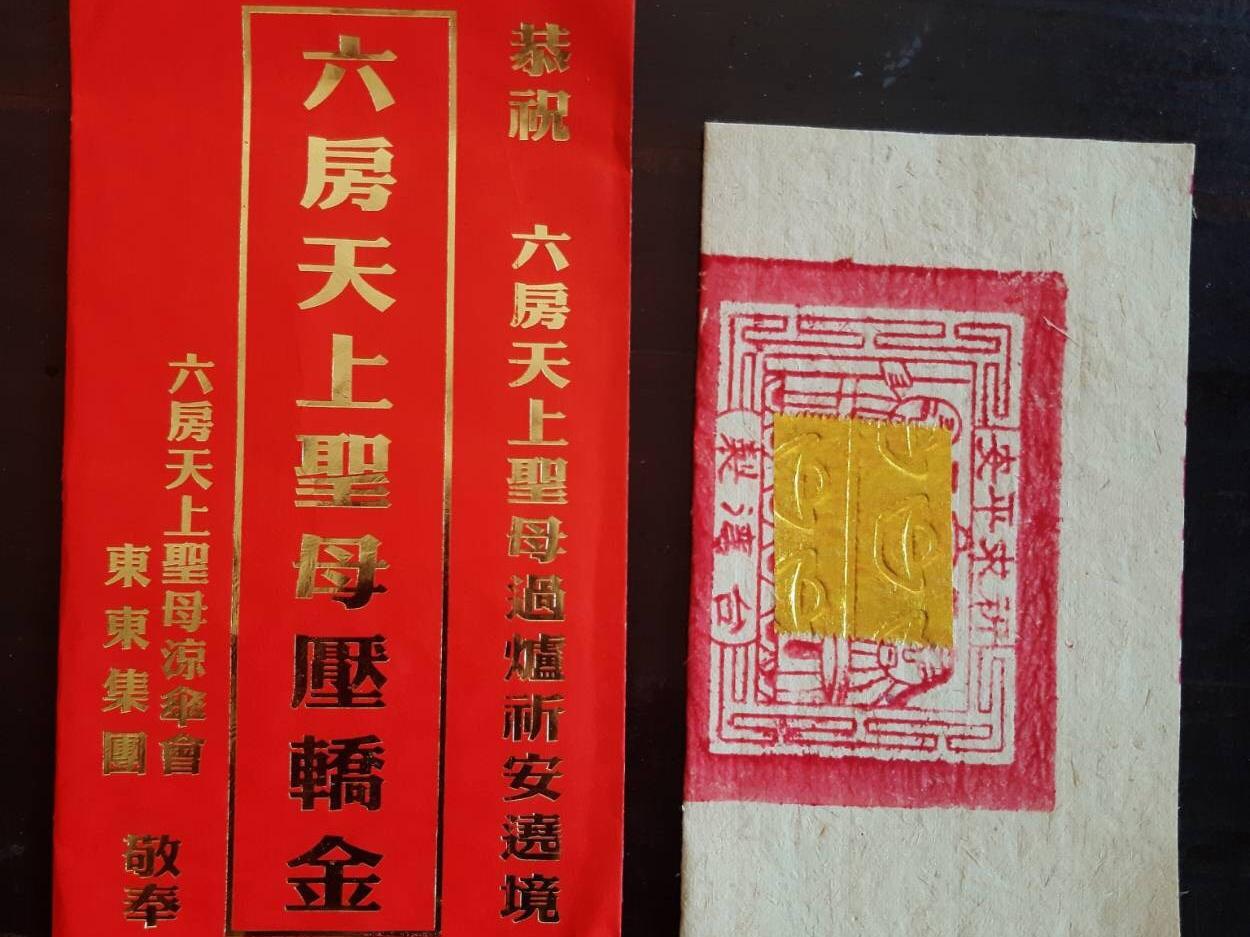 恭祝 六房天上聖母過爐祈安遶境
六房天上聖母壓轎金
六房天上聖母涼傘會
東東集團
敬奉
祈求平安
台灣製